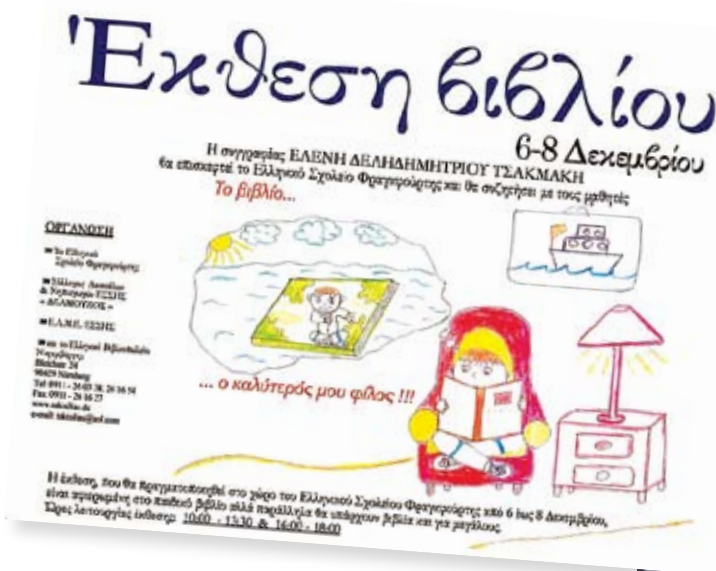 Έκθεση βιβλίου
6-8 Δεκεμβρίου
Η συγγραφέας ΕΛΕΝΗ ΔΕΛΗΔΗΜΗΤΡΙΟΥ ΤΣΑΚΜΑΚΗ
θα επισκεφτεί το Ελληνικό Σχολείο Φραγκφούρτης και θα συζητήσει με τους μαθητές
Το βιβλίο...
ΟΡΓΑΝΩΣΗ
Το Ελληνικό
Σχολείο Φραγκφούρτης
Σύλλογος Δασκάλων
& Νηπιαγωγών ΕΣΣΗΣ
« ΔΕΛΜΟΥΖΟΣ »
Ε.Λ.Μ.Ε. ΕΣΣΗΣ
και το Ελληνικό Βιβλιοπωλείο
Νυρεμβέργης
24
90429 Nürnberg
Tel 0911 -
Fax 0911 - 26 16 27
... ο καλύτερός μου φίλος !!!
Η έκθεση, που θα πραγματοποιηθεί στο χώρο του Ελληνικού Σχολείου Φραγκφούρτης από 6 έως 8 Δεκεμβρίου,
είναι αφιερωμένη στο παιδικό βιβλίο αλλά παράλληλα θα υπάρχουν βιβλία και για μεγάλους.
Ώρες λειτουργίας έκθεσης: 10:00 - 13:30 & 16:00 - 18:00